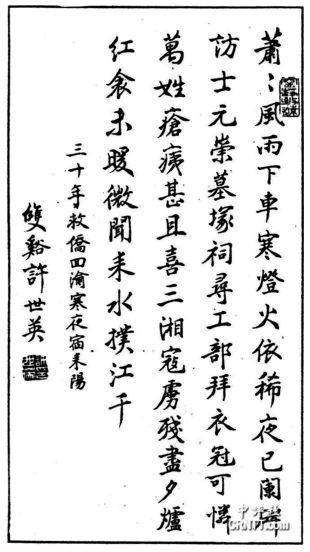 蕭〻風雨下車寒燈火依稀夜已闌碑
訪士元崇墓塚祠尋工部拜衣冠可憐
萬姓瘡痍甚且喜三湘寇虜殘盡夕爐
紅衾未暖微聞耒水撲江干
三十年救僑回渝寒夜宿耒陽
雙谿許世英